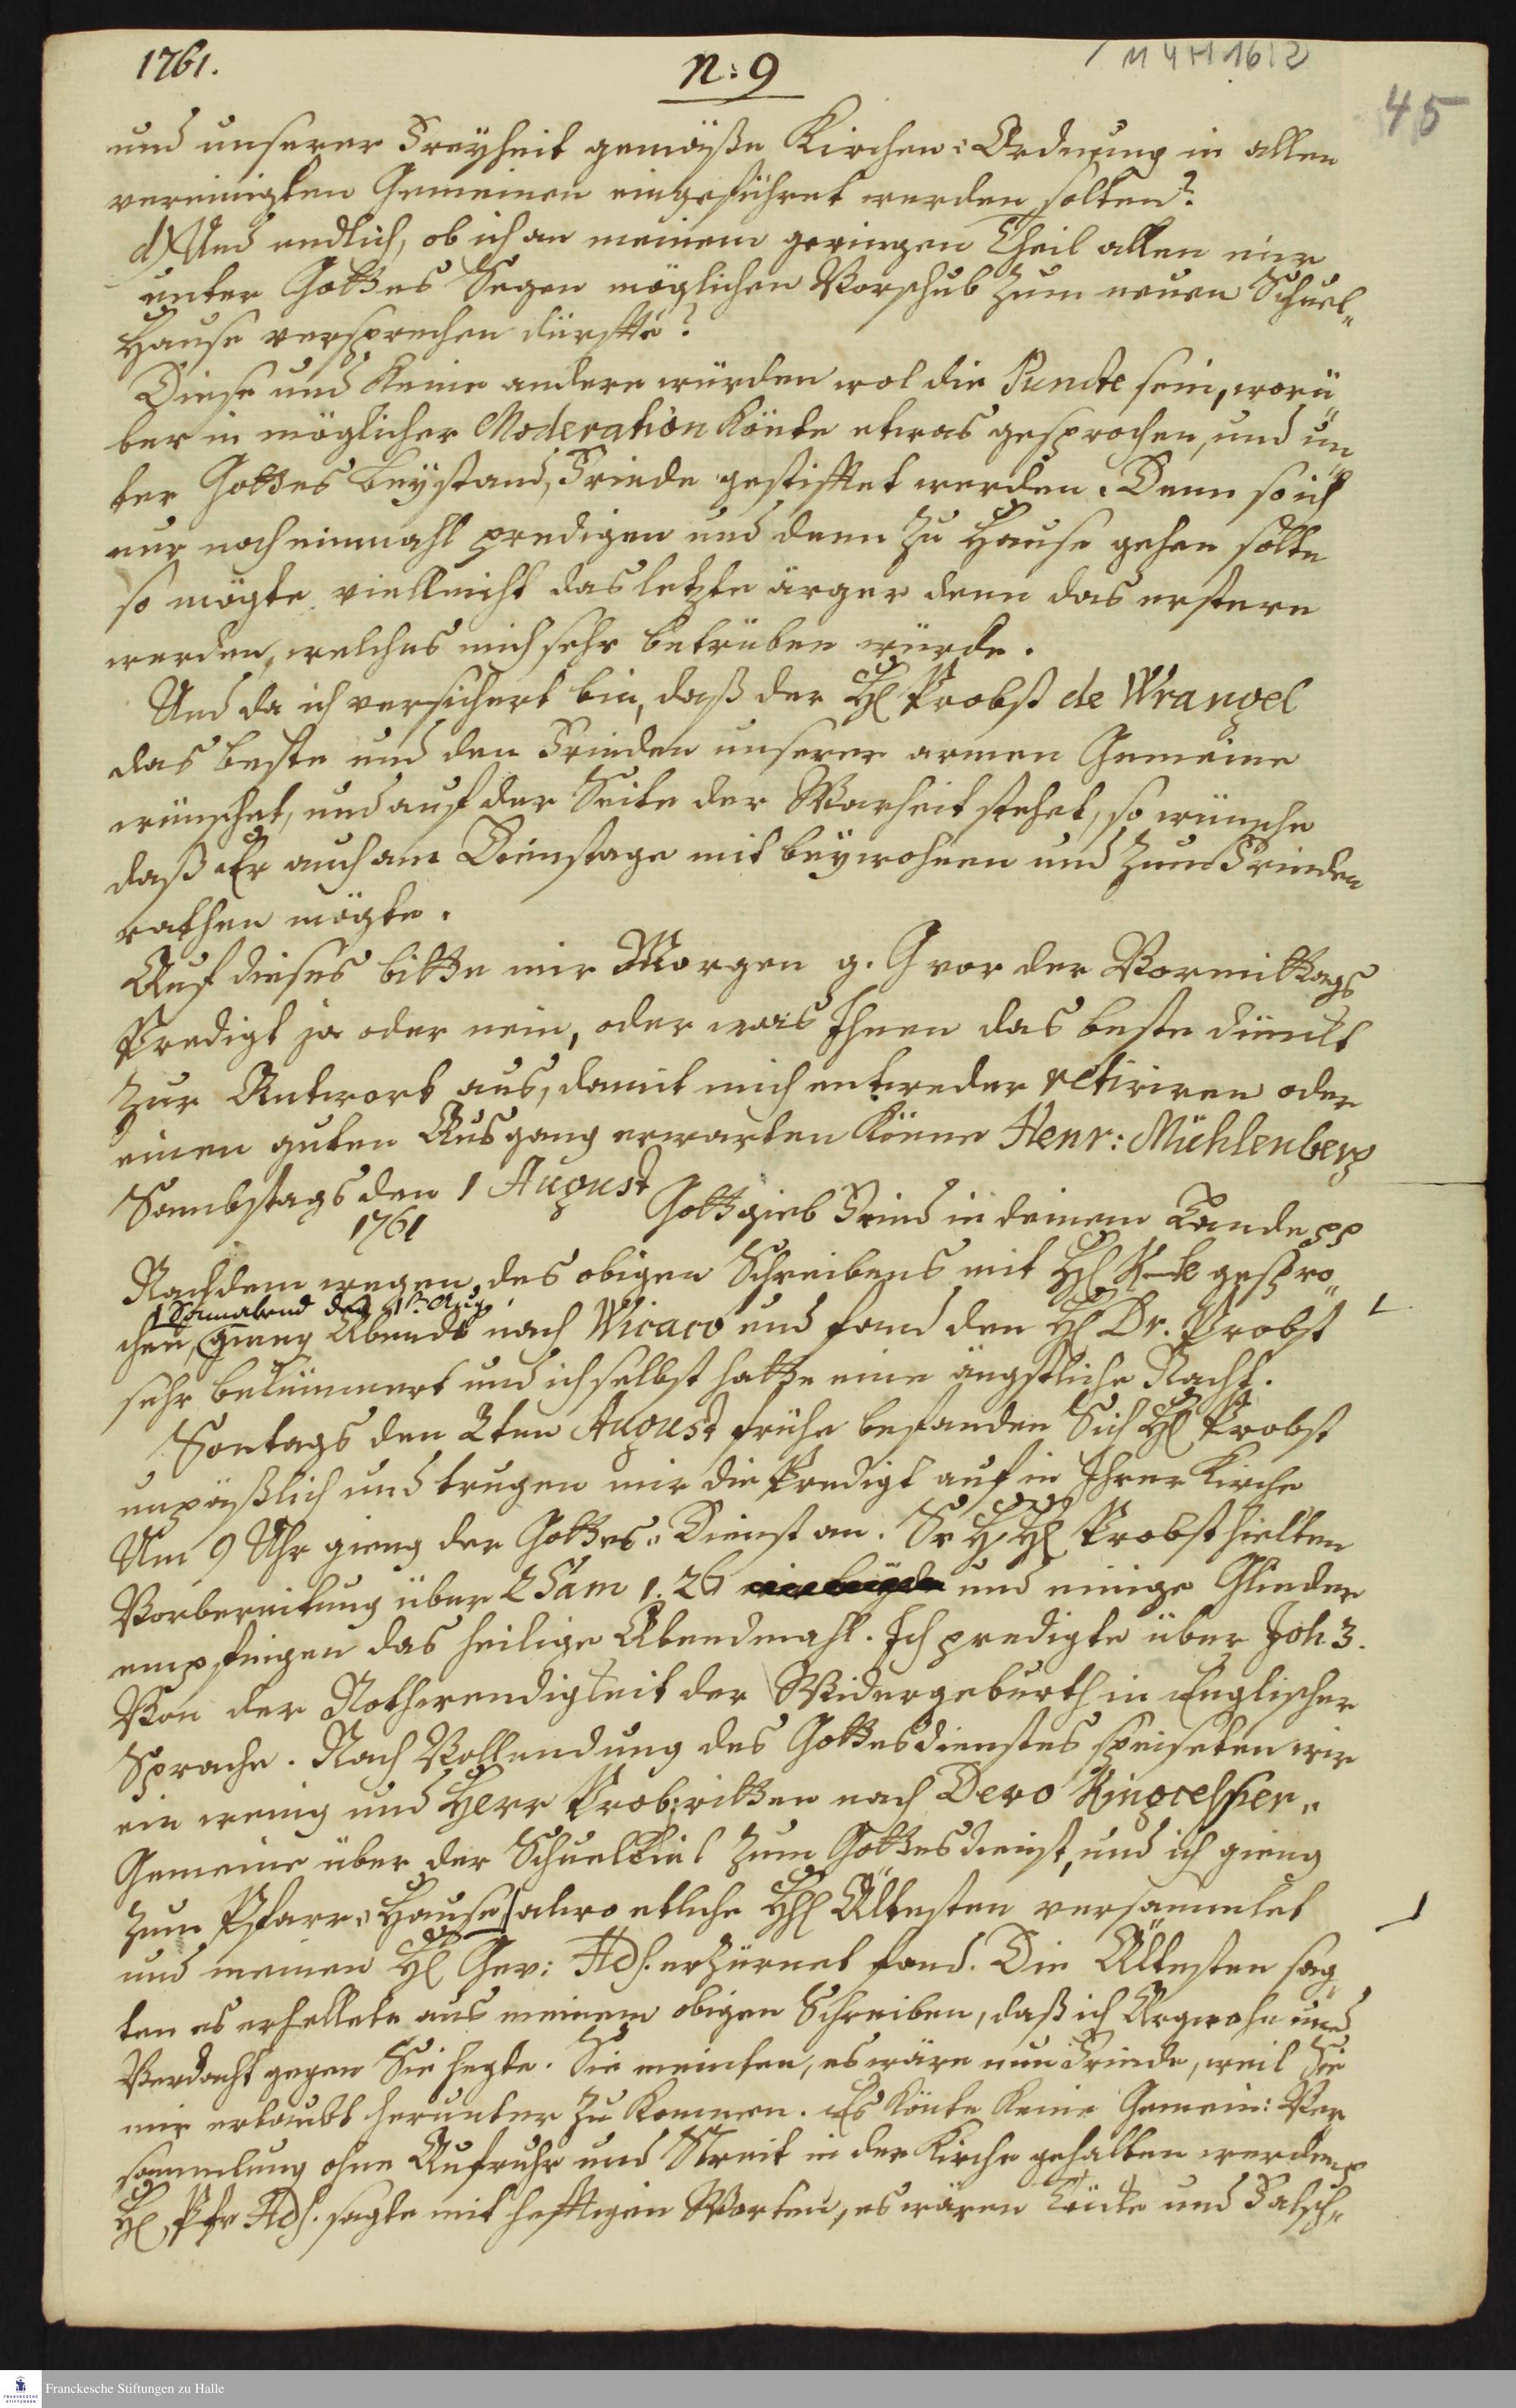 1761.
n: 9
M 4 H 16 : 2
45
und unserer Freyheit gemäße Kirchen-Ordnung in allen
vereinigten Gemeinen eingeführet werden solten?
d) Und endlich, ob ich an meinem geringen Theil allen mir
unter Gottes Segen möglichen Vorschub zum neuen Schul-
Hause versprechen dürffte?
Diese und keine andere würden wol die Puncte sein, worü
ber in möglicher Moderation könte etwas gesprochen, und un
ter Gottes Beystand, Friede gestifftet werden. Denn so ich
nur noch einmahl predigen und denn zu Hause gehen solte
so mögte vielleicht das letzte ärger denn das erstere
werden, welches mich sehr betrüben würde.
Und da ich versichert bin, daß der H Probst de Wrangel
das beste und den Frieden unserer armen Gemeine
wünschet, und auf der Seite der Warheit stehet, so wünsche
daß Er auch am Dienstage mit beywohnen und zum Frieden
rathen mögte.
Auf dieses bitte mir Morgen g. G vor der Vormittags
Predigt ja oder nein, oder was Ihnen das beste dünckt
zur Antwort aus, damit mich entweder retiriren oder
einen guten Ausgang erwarten könne Henr: Mühlenberg
Sonnbstags den 1 August
1761
Gott gieb Fried in deinem Lande pp
Nachdem wegen des obigen Schreibens mit H K-te gespro-
Sonnabend den 1st Aug.
chen, gieng Abends nach Wicaco und fand den H Dr. Probst
sehr bekümmert und ich selbst hatte eine ängstliche Nacht.
Sontags den 2ten August frühe befanden Sich H Probst
unpäßlich und trugen mir die Predigt auf in Ihrer Kirche
Um 9 Uhr gieng der Gottes-Dienst an. Sr H H Probst hielten
Vorbereitung über 2 Sam 1. 26 und einige Glieder
empfingen das heilige Abendmahl. Ich predigte über Joh. 3.
Von der Nothwendigkeit der Widergeburth in Englischer
Sprache. Nach Vollendung des Gottesdienstes speiseten wir
ein wenig und Herr Prob: ritten nach Dero Kingcesser-
Gemeine über der Schuelkiel zum Gottesdienst, und ich gieng
zum Pfarr-Hause, alwo etliche HH Ältesten versammlet
und meinen H Gev: Hds. erzürnet fand. Die Ältesten sag
ten es erhellete aus meinem obigen Schreiben, daß ich Argwohn und
Verdacht gegen Sie hegte. Sie meinten, es wäre nun Friede, weil Sie
mir erlaubt herunter zu kommen. Es könte keine Gemein: Ver
sammlung ohne Aufruhr und Streit in der Kirche gehalten werden p
H Pfr Hds. sagte mit hefftigen Worten, es wären Tücke und Falsch-
Franckesche Stiftungen zu Halle